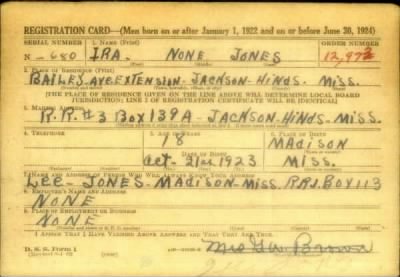 REGISTRATION CARD—(Men born on or after January 1, 1922 and on or before June 30, 1924)
SERIAL NUMBER 1. NAME (Print) ORDER NUMBER
N-680 IRA. NONE JONES 12,972
2. PLACE OF RESIDENCE (Print)
BAILEY AVE EXTENSION - JACKSON - HINDS - MISS.
[THE PLACE OF RESIDENCE GIVEN ON THE LINE ABOVE WILL DETERMINE LOCAL BOARD
JURISDICTION; LINE 2 OF REGISTRATION CERTIFICATE WILL BE IDENTICAL]
3. MAILING ADDRESS
R.R.#3 BOX 139A - JACKSON - HINDS - MISS.
4. TELEPHONE 5. AGE IN YEARS 6. PLACE OF BIRTH
18 MADISON
DATE OF BIRTH
OCT - 21st 1923 MISS.
7. NAME AND ADDRESS OF PERSON WHO WILL ALWAYS KNOW YOUR ADDRESS
LEE - JONES - MADISON - MISS. R.R.1 BOX 113
8. EMPLOYER'S NAME AND ADDRESS
NONE
9. PLACE OF EMPLOYMENT OR BUSINESS
NONE
I AFFIRM THAT I HAVE VERIFIED ABOVE ANSWERS AND THAT THEY ARE TRUE.
D. S. S. Form 1
Mrs Brown